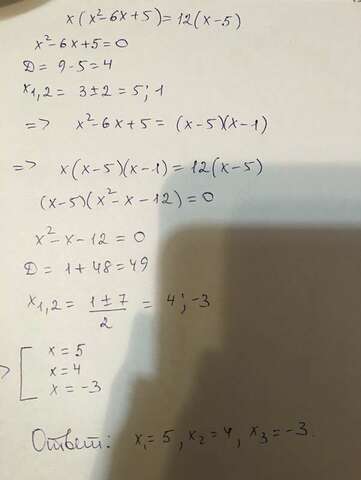 x(x²-6x+5)=12(x-5)
x²-6x+5=0
D = 9-5=4
x₁,₂ = 3±2 = 5; 1
=> x²-6x+5 = (x-5)(x-1)
=> x(x-5)(x-1) = 12(x-5)
(x-5)(x²-x-12)=0
x²-x-12=0
D = 1+48=49
x₁,₂ = (1±7)/2 = 4; -3
> [ x=5
x=4
x=-3
Ответ: x₁=5, x₂=4, x₃=-3.